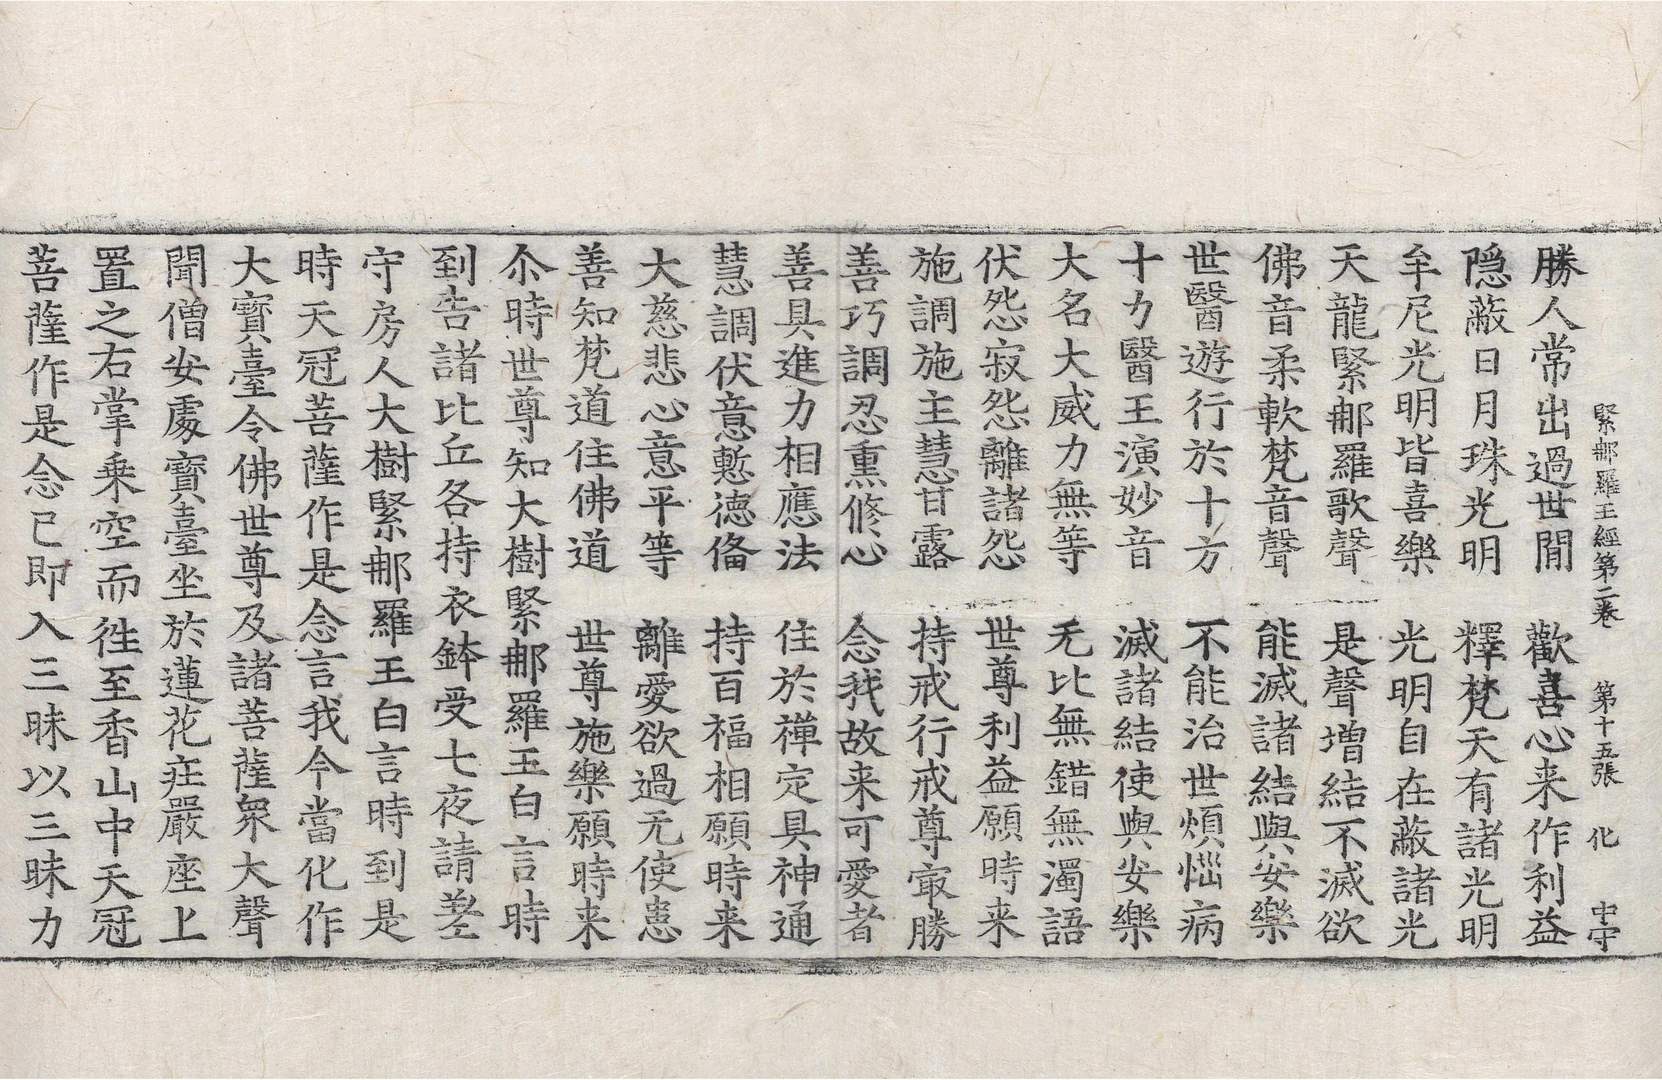 緊那羅王經第二卷　第十五張　化　中守
勝人常出過世間　歡喜心来作利益
隱蔽日月珠光明　釋梵天有諸光明
牟尼光明皆喜樂　光明自在蔽諸光
天龍緊那羅歌聲　是聲增結不滅欲
佛音柔軟梵音聲　能滅諸結與安樂
世醫遊行於十方　不能治世煩惱病
十力醫王演妙音　滅諸結使與安樂
大名大威力無等　无比無錯無濁語
伏怨寂怨離諸怨　世尊利益願時来
施調施主慧甘露　持戒行戒尊冣勝
善巧調忍熏修心　念我故来可愛者
善具進力相應法　住於禪定具神通
慧調伏意慙德俻　持百福相願時来
大慈悲心意平等　離愛欲過无使恚
善知梵道住佛道　世尊施樂願時来
尒時世尊知大樹緊那羅王白言時
到告諸比丘各持衣鉢受七夜請差
守房人大樹緊那羅王白言時到是
時天冠菩薩作是念言我今當化作
大寶臺令佛世尊及諸菩薩衆大聲
聞僧安處寶臺坐於蓮花庄嚴座上
置之右掌乘空而往至香山中天冠
菩薩作是念已即入三昧以三昧力